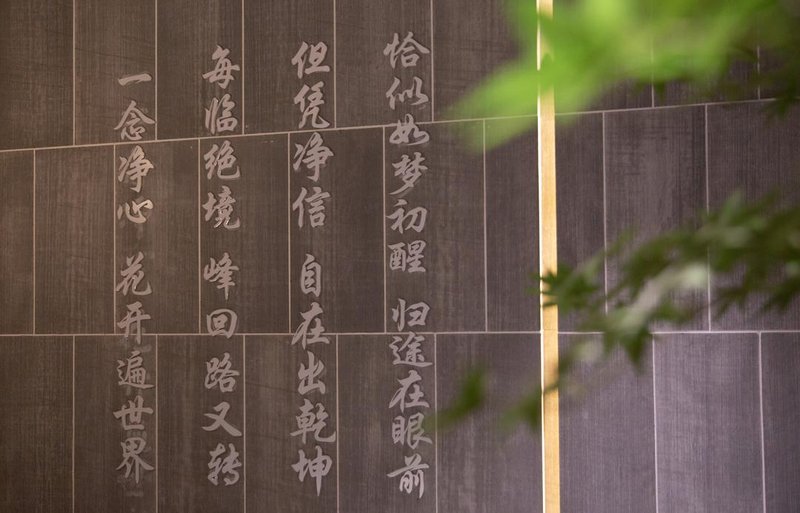 一念净心 花开遍世界
每临绝境 峰回路又转
但凭净信 自在出乾坤
恰似如梦初醒 归途在眼前